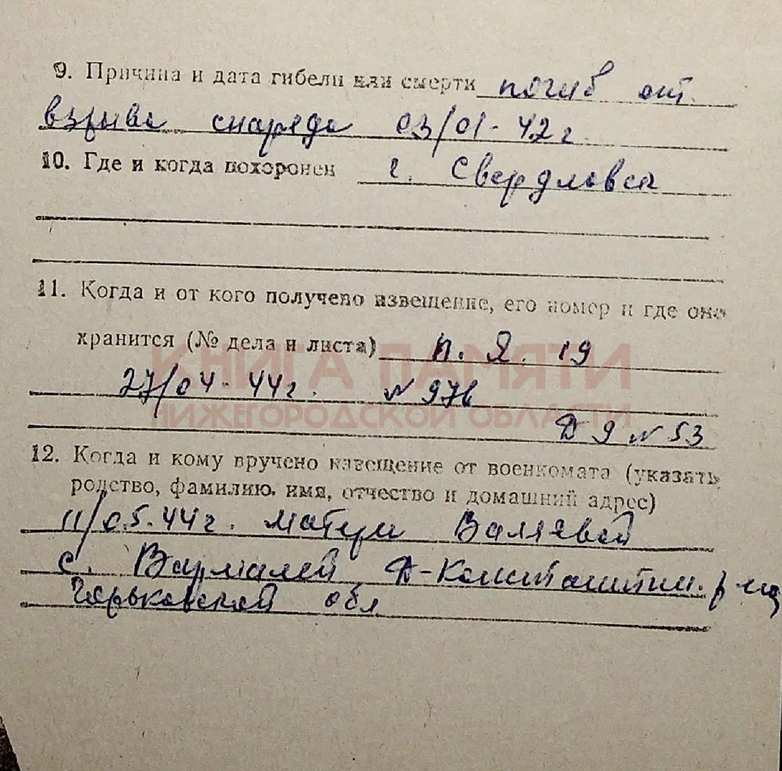 9. Причина и дата гибели или смерти погиб от
взрыва снаряда 03/01-42 г
10. Где и когда похоронен г. Свердловск
11. Когда и от кого получено извещение, его номер и где оно
хранится (№ дела и листа) п. Я. 19
27/04-44 г. № 976
Д 9 № 53
КНИГА ПАМЯТИ
НИЖЕГОРОДСКОЙ ОБЛАСТИ
12. Когда и кому вручено извещение от военкомата (указать
родство, фамилию, имя, отчество и домашний адрес)
11/05-44 г. матери Валяевой
с. Вармалей Д-Константин. р-на
Горьковской обл